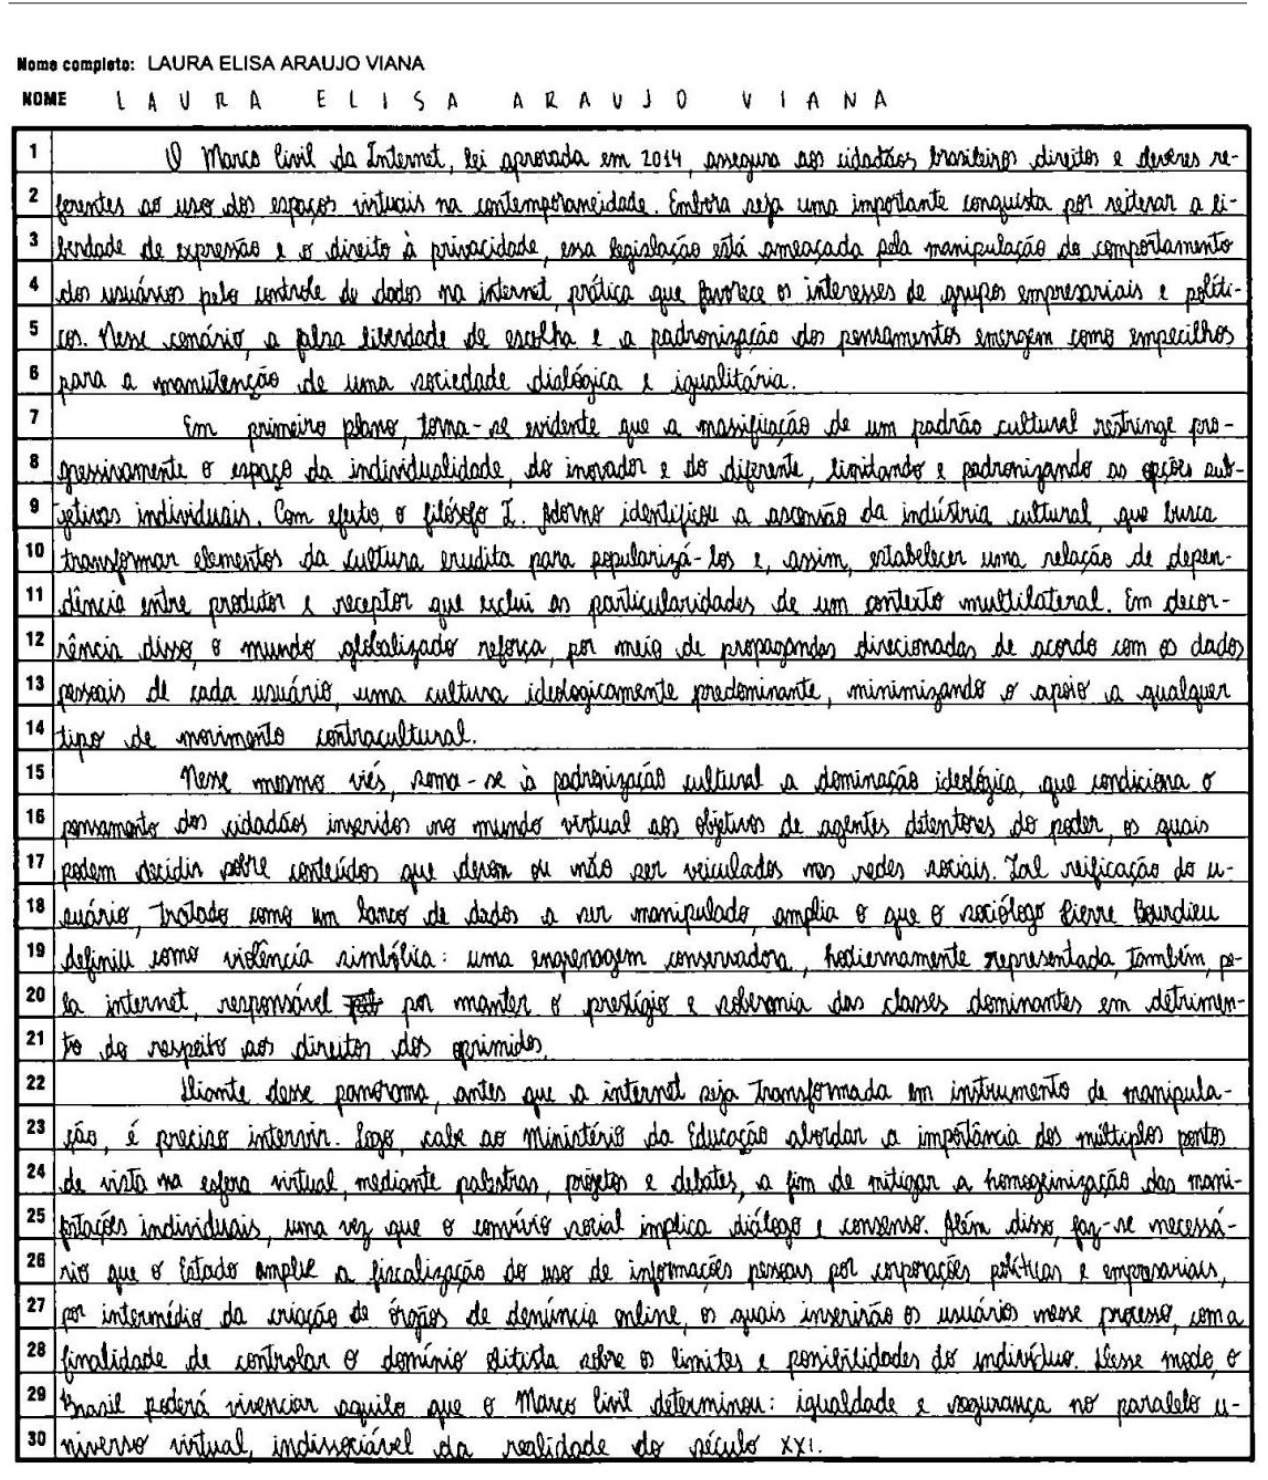 Nome completo: LAURA ELISA ARAUJO VIANA
NOME LAURA ELISA ARAUJO VIANA
1 O Marco Civil da Internet, lei aprovada em 2014, assegura aos cidadãos brasileiros direitos e deveres re-
2 ferentes ao uso dos espaços virtuais na contemporaneidade. Embora seja uma importante conquista por reiterar a li-
3 berdade de expressão e o direito à privacidade, essa legislação está ameaçada pela manipulação do comportamento
4 dos usuários pelo controle de dados na internet, prática que favorece os interesses de grupos empresariais e políti-
5 cos. Nesse cenário, a falsa liberdade de escolha e a padronização dos pensamentos emergem como empecilhos
6 para a manutenção de uma sociedade dialógica e igualitária.
7 Em primeiro plano, torna-se evidente que a massificação de um padrão cultural restringe pro-
8 gressivamente o espaço da individualidade, do inovador e do diferente, limitando e padronizando as opções sub-
9 jetivas individuais. Com efeito, o filósofo T. Adorno identificou a ascensão da indústria cultural, que busca
10 transformar elementos da cultura erudita para popularizá-los e, assim, estabelecer uma relação de depen-
11 dência entre produtor e receptor que exclui as particularidades de um contexto multilateral. Em decor-
12 rência disso, o mundo globalizado reforça, por meio de propagandas direcionadas de acordo com os dados
13 pessoais de cada usuário, uma cultura ideologicamente predominante, minimizando o apoio a qualquer
14 tipo de movimento contracultural.
15 Nesse mesmo viés, soma-se à padronização cultural a dominação ideológica, que condiciona o
16 pensamento dos cidadãos inseridos no mundo virtual aos objetivos de agentes detentores do poder, os quais
17 podem decidir sobre conteúdos que devem ou não ser veiculados nas redes sociais. Tal reificação do u-
18 suário, tratado como um banco de dados a ser manipulado, amplia o que o sociólogo Pierre Bourdieu
19 definiu como violência simbólica: uma engrenagem conservadora, hodiernamente representada, também, pe-
20 la internet, responsável por manter o prestígio e soberania das classes dominantes em detrimen-
21 to do respeito aos direitos dos oprimidos.
22 Diante desse panorama, antes que a internet seja transformada em instrumento de manipula-
23 ção, é preciso intervir. Logo, cabe ao Ministério da Educação abordar a importância dos múltiplos pontos
24 de vista na esfera virtual, mediante palestras, projetos e debates, a fim de mitigar a homogeinização das mani-
25 festações individuais, uma vez que o convívio social implica diálogo e consenso. Além disso, faz-se necessá-
26 rio que o Estado amplie a fiscalização do uso de informações pessoais por corporações políticas e empresariais,
27 por intermédio da criação de órgãos de denúncia online, os quais inserirão os usuários nesse processo, com a
28 finalidade de controlar o domínio elitista sobre os limites e possibilidades do indivíduo. Desse modo, o
29 Brasil poderá vivenciar aquilo que o Marco Civil determinou: igualdade e segurança no paralelo u-
30 niverso virtual, indissociável da realidade do século XXI.